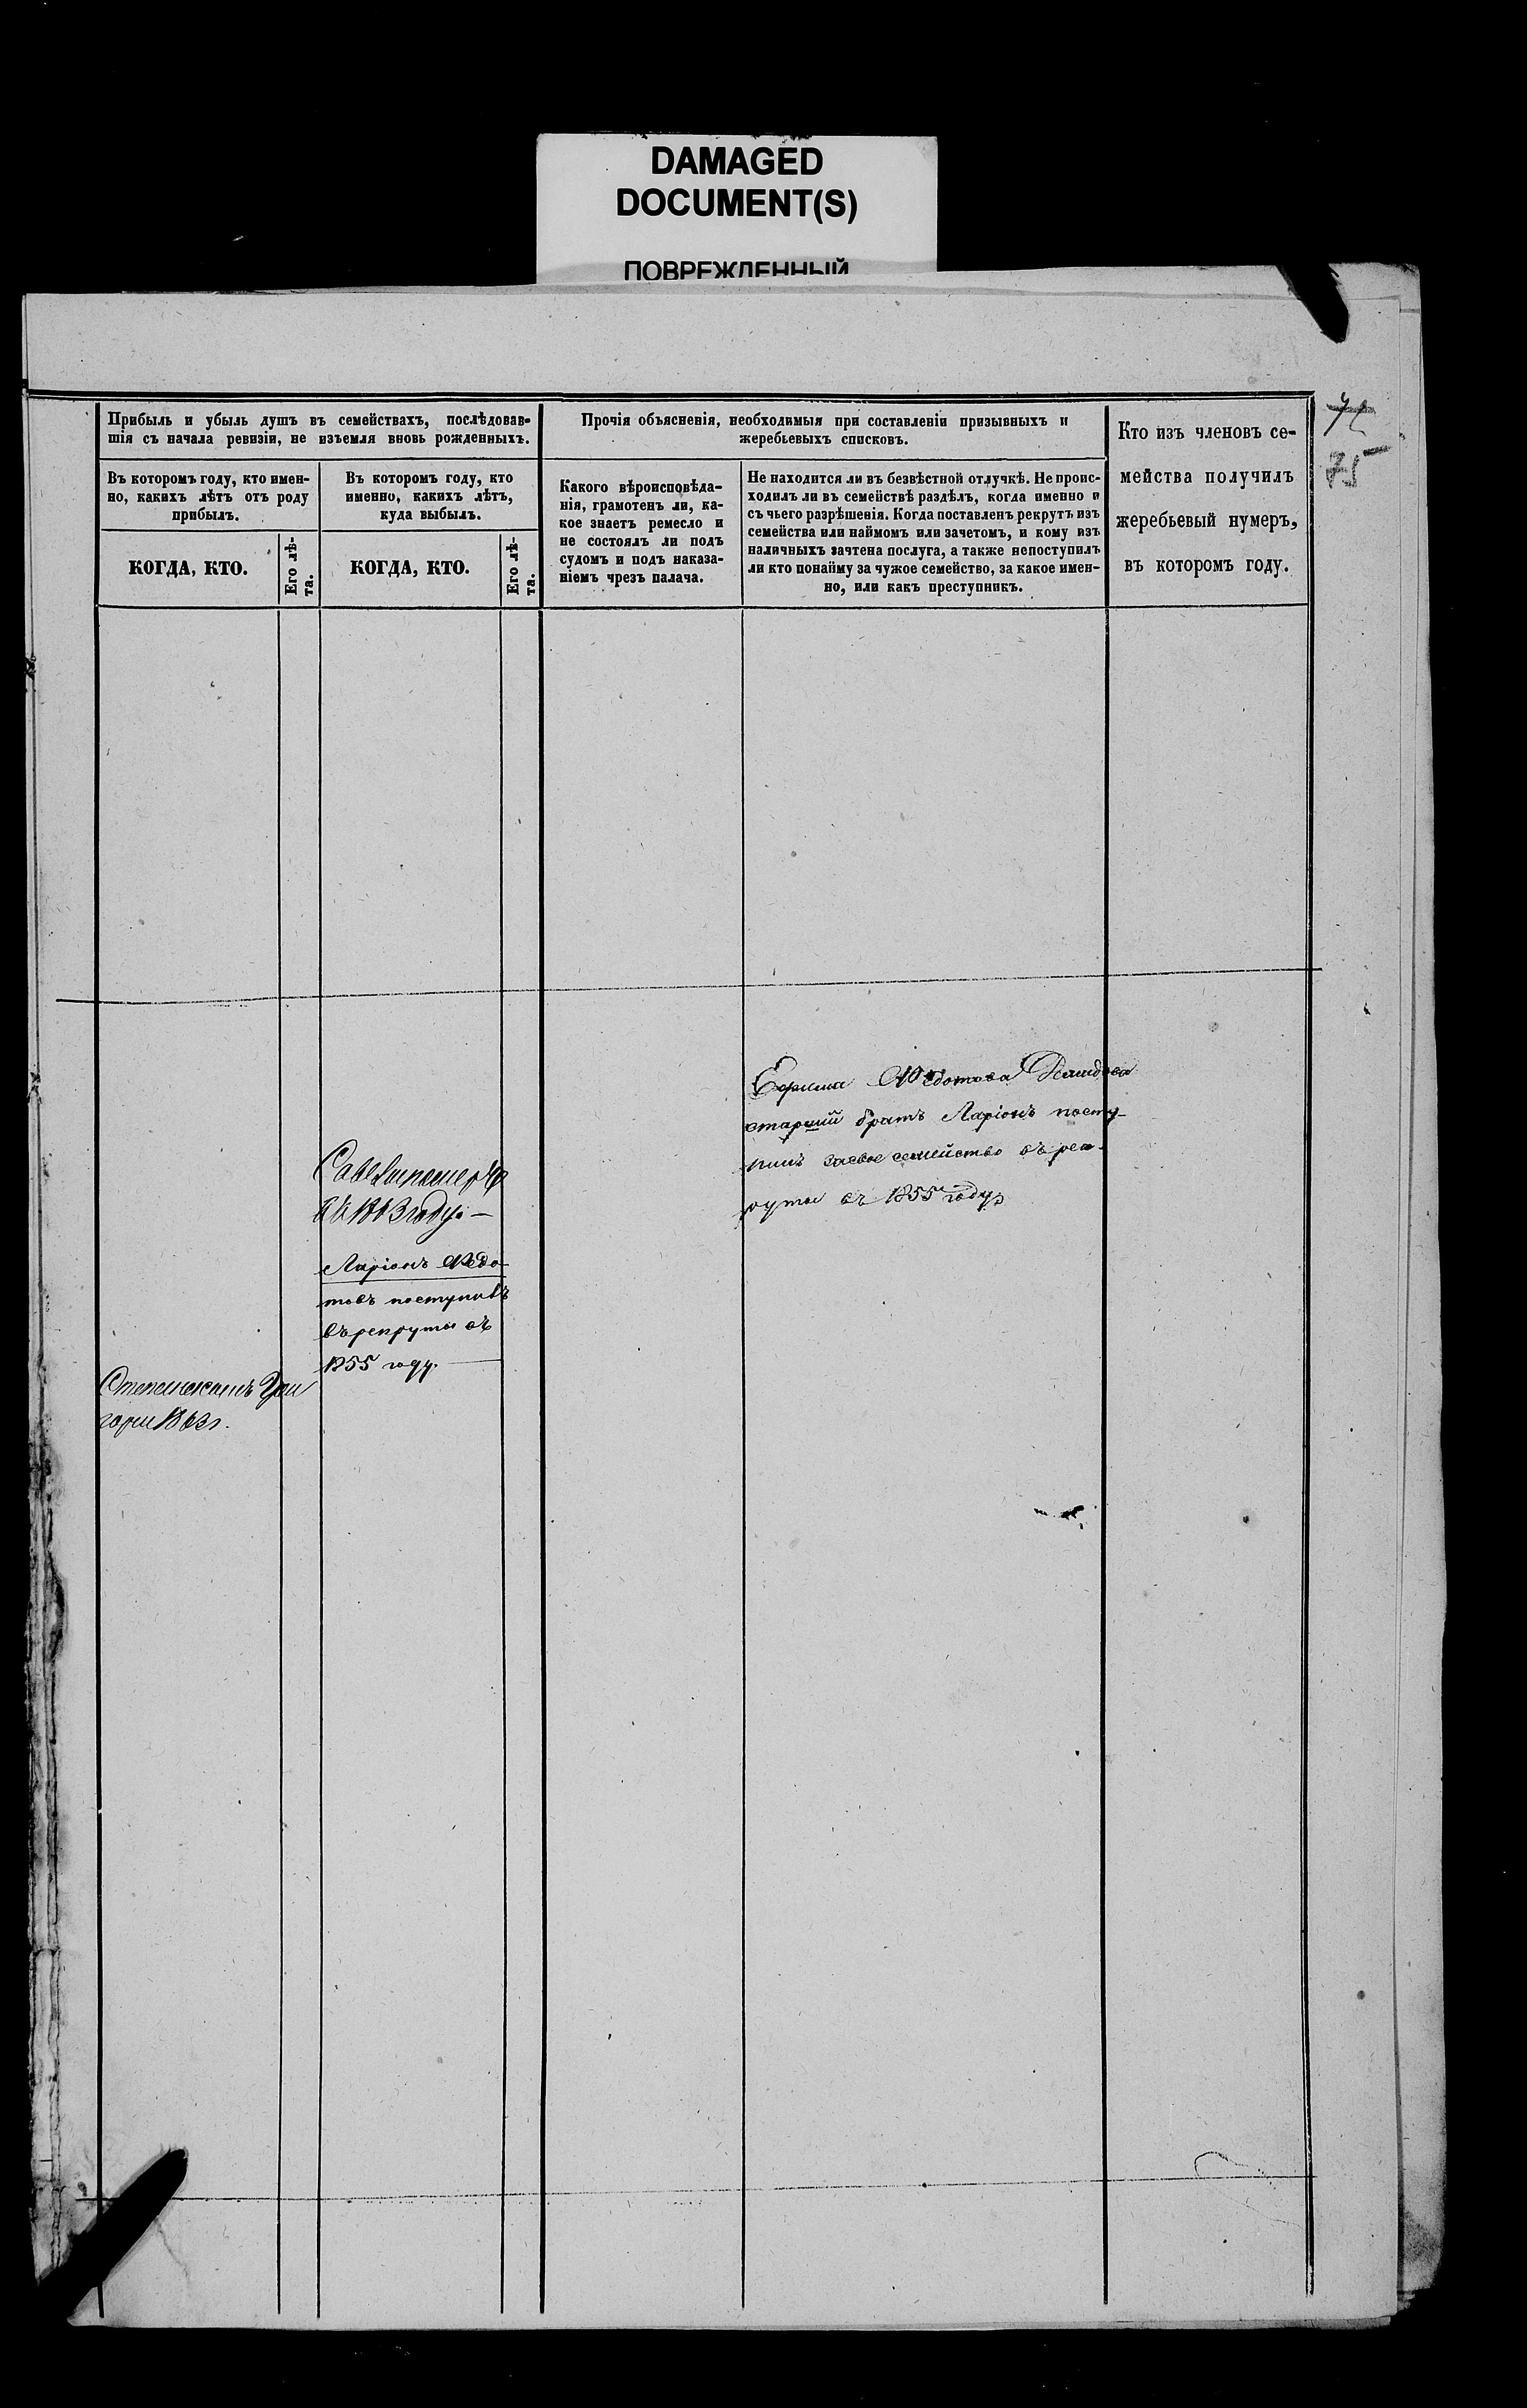 DAMAGED
DOCUMENT(S)
ПОВРЕЖДЕННЫЙ
75
Прибыль и убыль душъ въ семействахъ, послѣдовав-
шія съ начала ревизіи, не изъемля вновь рожденныхъ.
Въ которомъ году, кто имен-
но, какихъ лѣтъ отъ роду
прибылъ.
КОГДА, КТО.
Его лѣ-
та.
Въ которомъ году, кто
именно, какихъ лѣтъ,
куда выбылъ.
КОГДА, КТО.
Его лѣ-
та.
Прочія объясненія, необходимыя при составленіи призывныхъ и
жеребьевыхъ списковъ.
Какого вѣроисповѣда-
нія, грамотенъ ли, ка-
кое знаетъ ремесло и
не состоялъ ли подъ
судомъ и подъ наказа-
ніемъ чрезъ палача.
Не находится ли въ безвѣстной отлучкѣ. Не проис-
ходилъ ли въ семействѣ раздѣлъ, когда именно и
съ чьего разрѣшенія. Когда поставленъ рекрутъ изъ
семейства или наймомъ или зачетомъ, и кому изъ
наличныхъ зачтена послуга, а также непоступилъ
ли кто понайму за чужое семейство, за какое имен-
но, или какъ преступникъ.
Кто изъ членовъ се-
мейства получилъ
жеребьевый нумеръ,
въ которомъ году.
Ефима Федотова
старшій братъ Ларіонъ посту-
пилъ засвое семейство въ рек-
руты въ 1855 году
году. —
Ларіонъ Федо-
товъ поступилъ
въ рекруты въ
1855 году. —